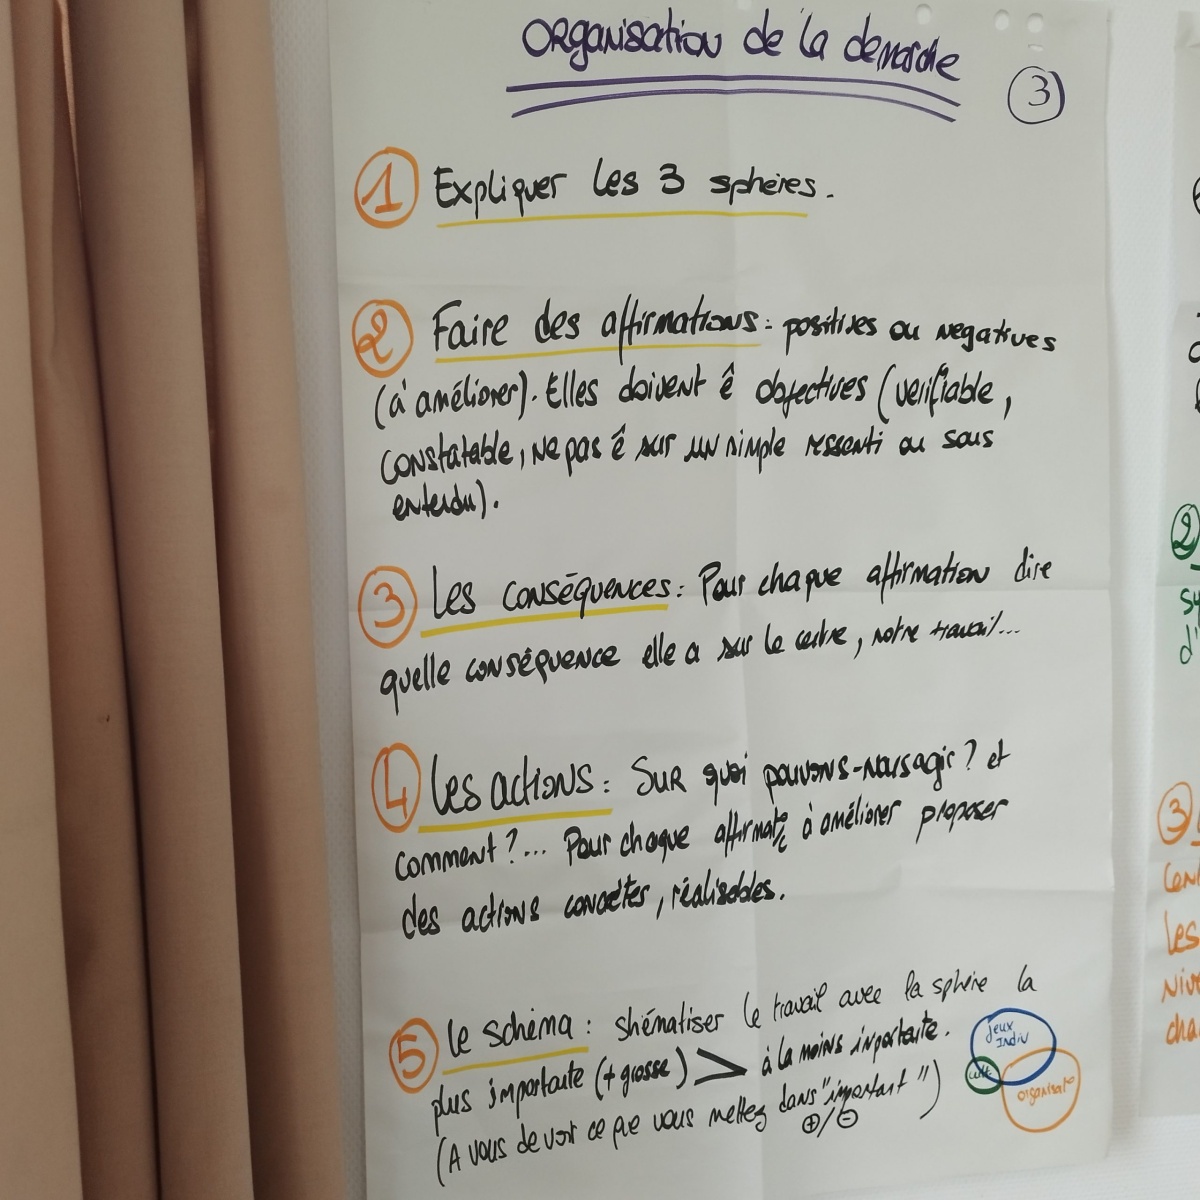 Organisation de la demarche
3
1 Expliquer les 3 sphères.
2 Faire des affirmations : positives ou negatives
(à améliorer). Elles doivent ê objectives (verifiable,
constatable, ne pas ê sur un simple ressenti ou sous
entendu).
3 Les conséquences : Pour chaque affirmation dire
quelle conséquence elle a sur le centre, notre travail...
4 Les actions : Sur quoi pouvons-nous agir ? et
comment ?... Pour chaque affirmat° à améliorer proposer
des actions concrètes, réalisables.
5 le schéma : shématiser le travail avec la sphère la
plus importante (+ grosse) > à la moins importante.
(A vous de voir ce que vous mettez dans "important")
+/-
jeux
Indiv
cult.
organisat°
2
3